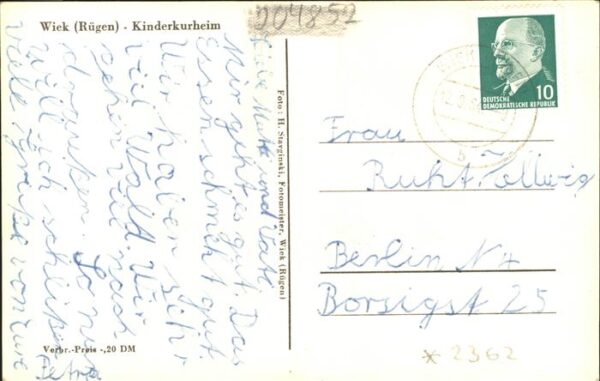 Wiek (Rügen) - Kinderkurheim
204852
Liebe Mutti und Vati.
Mir geht es gut. Das
Essen schmekt gut.
Wir haben sehr
viel Wald. Wir
gehen viel nach
draußen. So nun
will ich schließen
viele grüße von eure
Petra
Verbr.-Preis -,20 DM
Foto: H. Stavginski, Fotomeister, Wiek (Rügen)
10
DEUTSCHE
DEMOKRATISCHE REPUBLIK
Frau
Berlin N4
Borsigst 25
* 2362